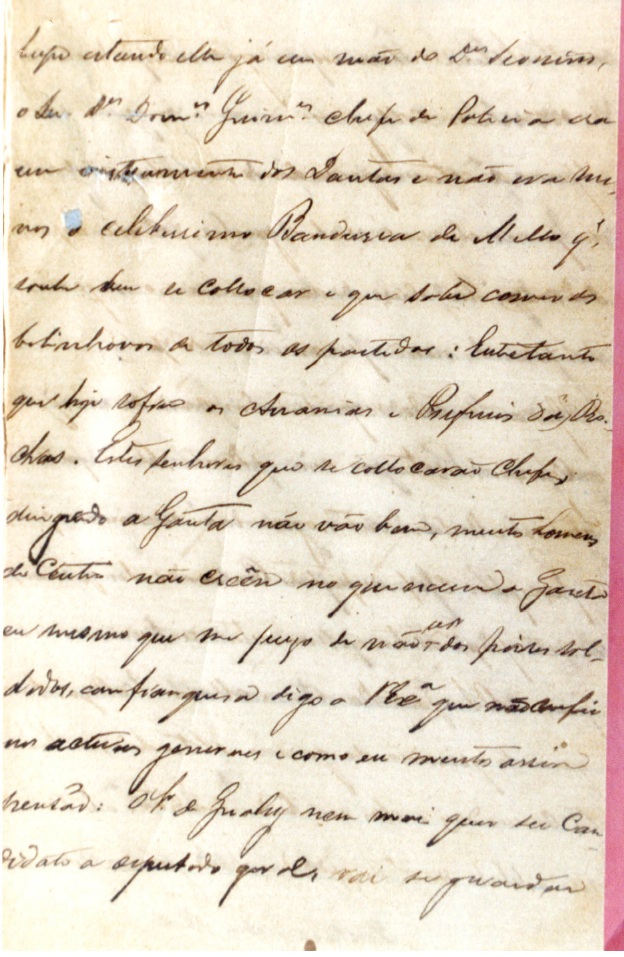 estando elle já em mão do Dr Leoncio,
o Sr. Dr. Domos Guimes chefe de Policia era
um instrumento dos Dantas e não era me-
nos o celeberrimo Bandeira de Mello q',
soube bem se collocar e que sabe comer os
bolinhovos de todos os partidos: Entretanto
que hoje os Ananias e das Ro-
chas. Estes senhores que se collocarão Chefes,
dirigindo a Gazeta não vão bem, muitos homens
do Centro não crêem no que escreve a Gazeta
eu mesmo que me julgo de não ser dos piores sol-
dados, com franquesa digo a VExª que não confio
nos actuaes generaes e como eu muitos assim
pensão: o Sr de Guahy nem mais quer ser Can-
didato a deputado geral, vai se guardar